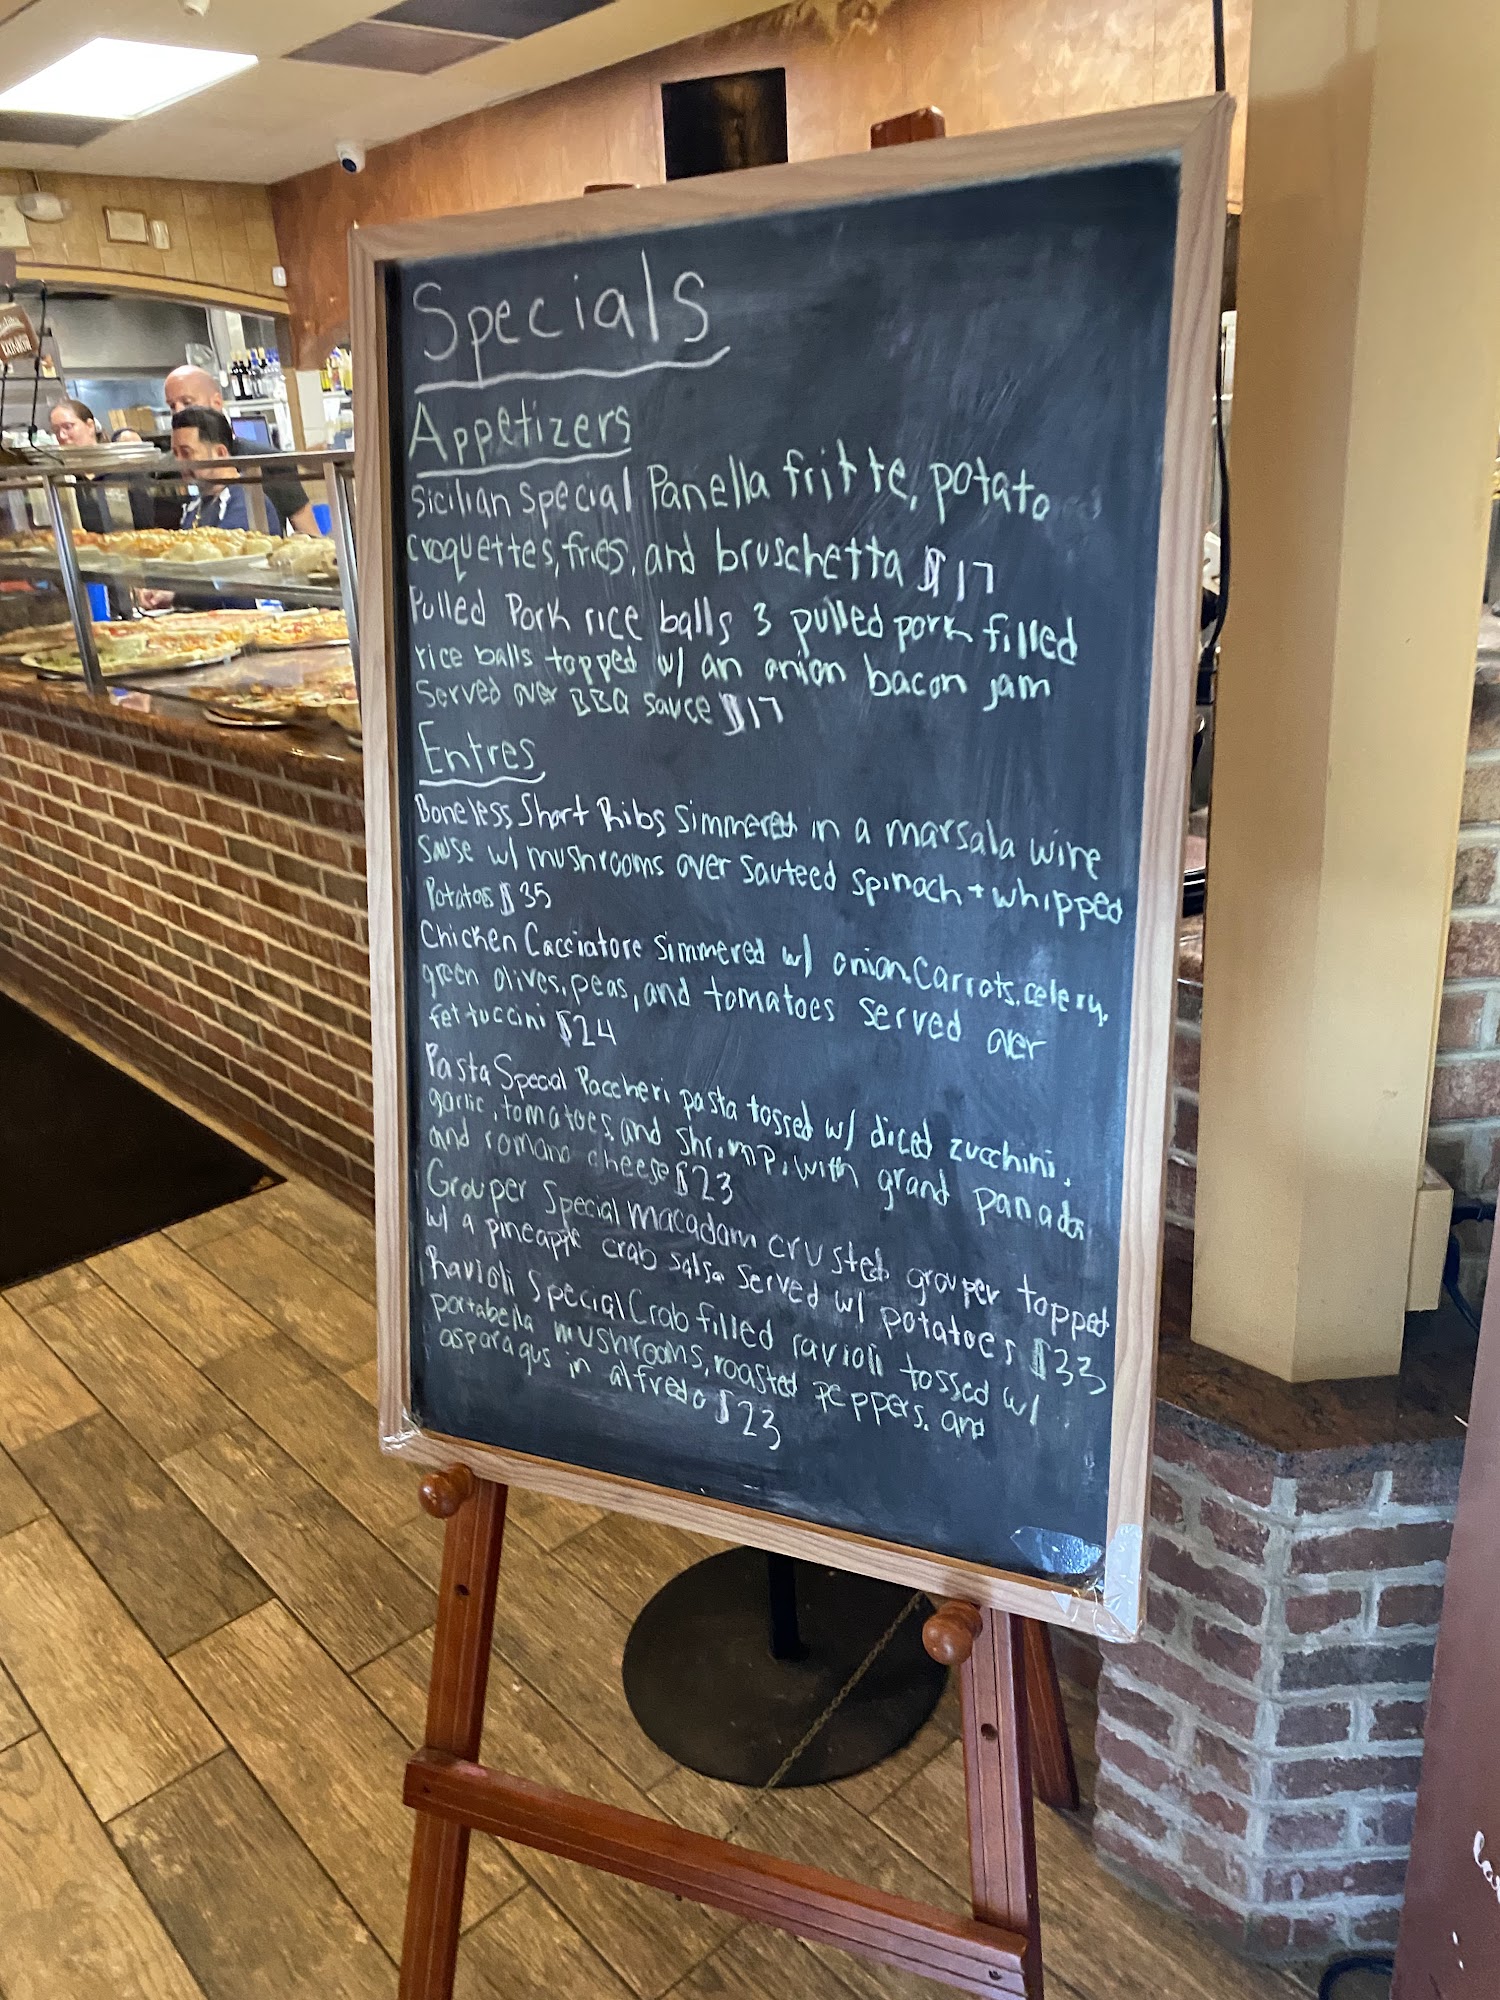 Specials
Appetizers
Sicilian Special Panella fritte, potato
croquettes, fries, and bruschetta $17
Pulled Pork rice balls 3 pulled pork filled
rice balls topped w/ an onion bacon jam
Served over BBQ sauce $17
Entres
Boneless Short Ribs simmered in a marsala wine
Sause w/ mushrooms over sauteed spinach + whipped
Potatoes $35
Chicken Cacciatore simmered w/ onion, carrots, celery,
green olives, peas, and tomatoes served over
fettuccini $24
Pasta Special Paccheri pasta tossed w/ diced zucchini,
garlic, tomatoes, and shrimp, with grand panada
and romano cheese $23
Grouper Special macadam crusted grouper topped
w/ a pineapple crab salsa served w/ potatoes $33
Ravioli Special Crab filled ravioli tossed w/
portabella mushrooms, roasted peppers, and
asparagus in alfredo $23